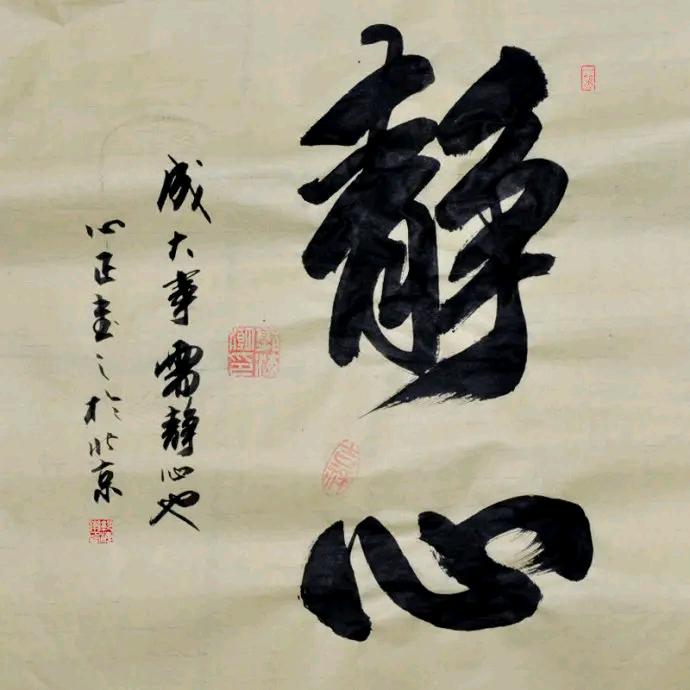 靜心
成大事需静心也
心正書之於北京